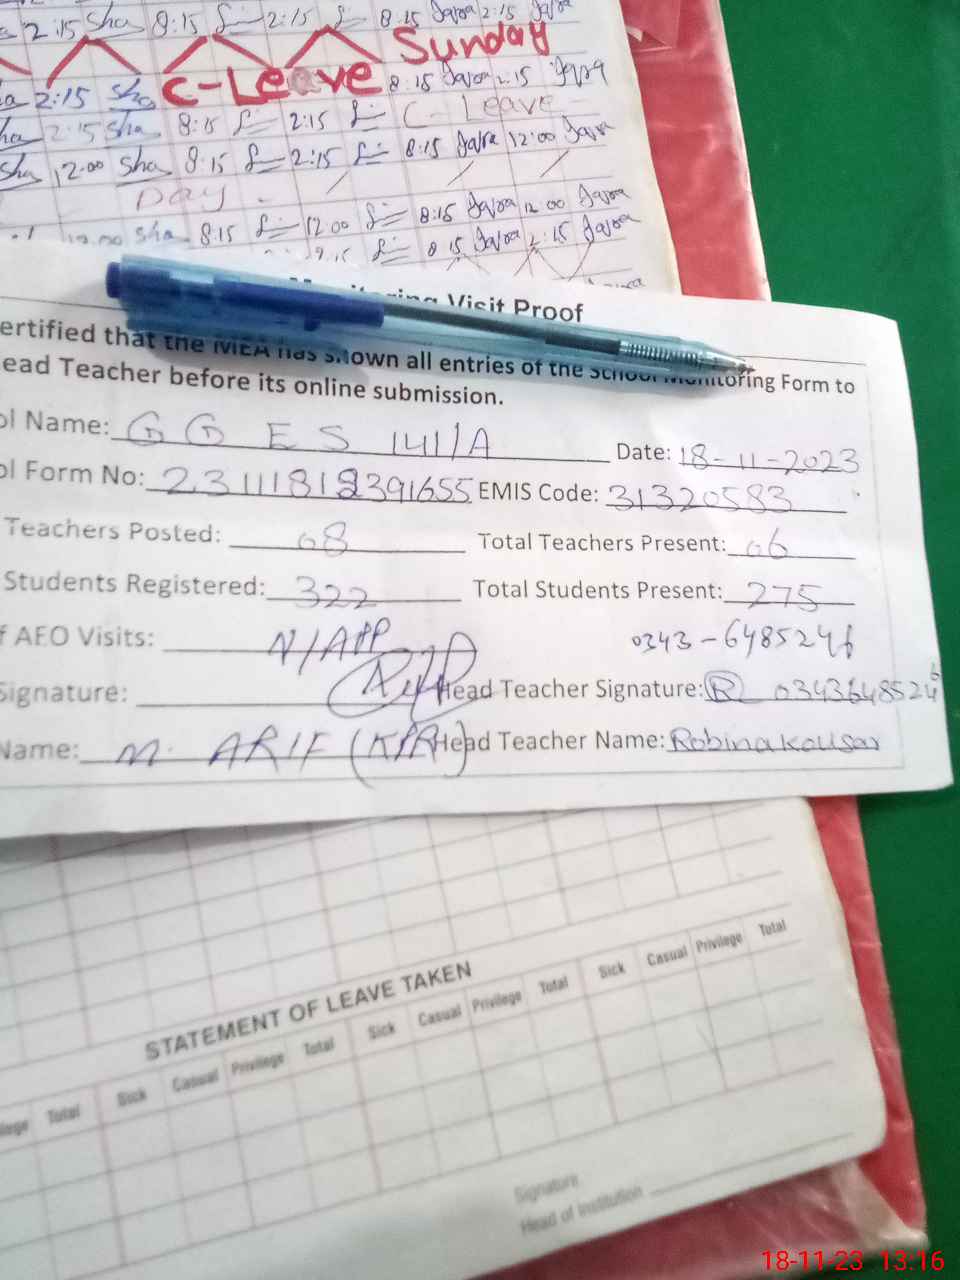 2:15 Sha 8:15 2:15 8:15 Jara 2:15 Jara
Sunday
C-Leave
2:15 Sha 8:15 Jara 2:15 Jara
2:15 Sha 8:15 2:15 C-Leave
Sha 12:00 Sha 8:15 2:15 8:15 Jara 12:00 Jara
Day
Sha 8:15 12:00 8:15 Jara 12:00 Jara
8:15 Jara 2:15 Jara
Monitoring Visit Proof
ertified that the MEA has shown all entries of the School Monitoring Form to
ead Teacher before its online submission.
ol Name: G G E S 141/A Date: 18-11-2023
ol Form No: 23111818391655 EMIS Code: 31320583
Teachers Posted: 08 Total Teachers Present: 06
Students Registered: 322 Total Students Present: 275
f AEO Visits: N/APP 0343-6485246
Signature: Head Teacher Signature: R 03436485246
Name: M. ARIF (KPR) Head Teacher Name: Robina kousar
STATEMENT OF LEAVE TAKEN
ilege Total Sick Casual Privilege Total Sick Casual Privilege Total Sick Casual Privilege Total
Signature
Head of Institution
18-11-23 13:16